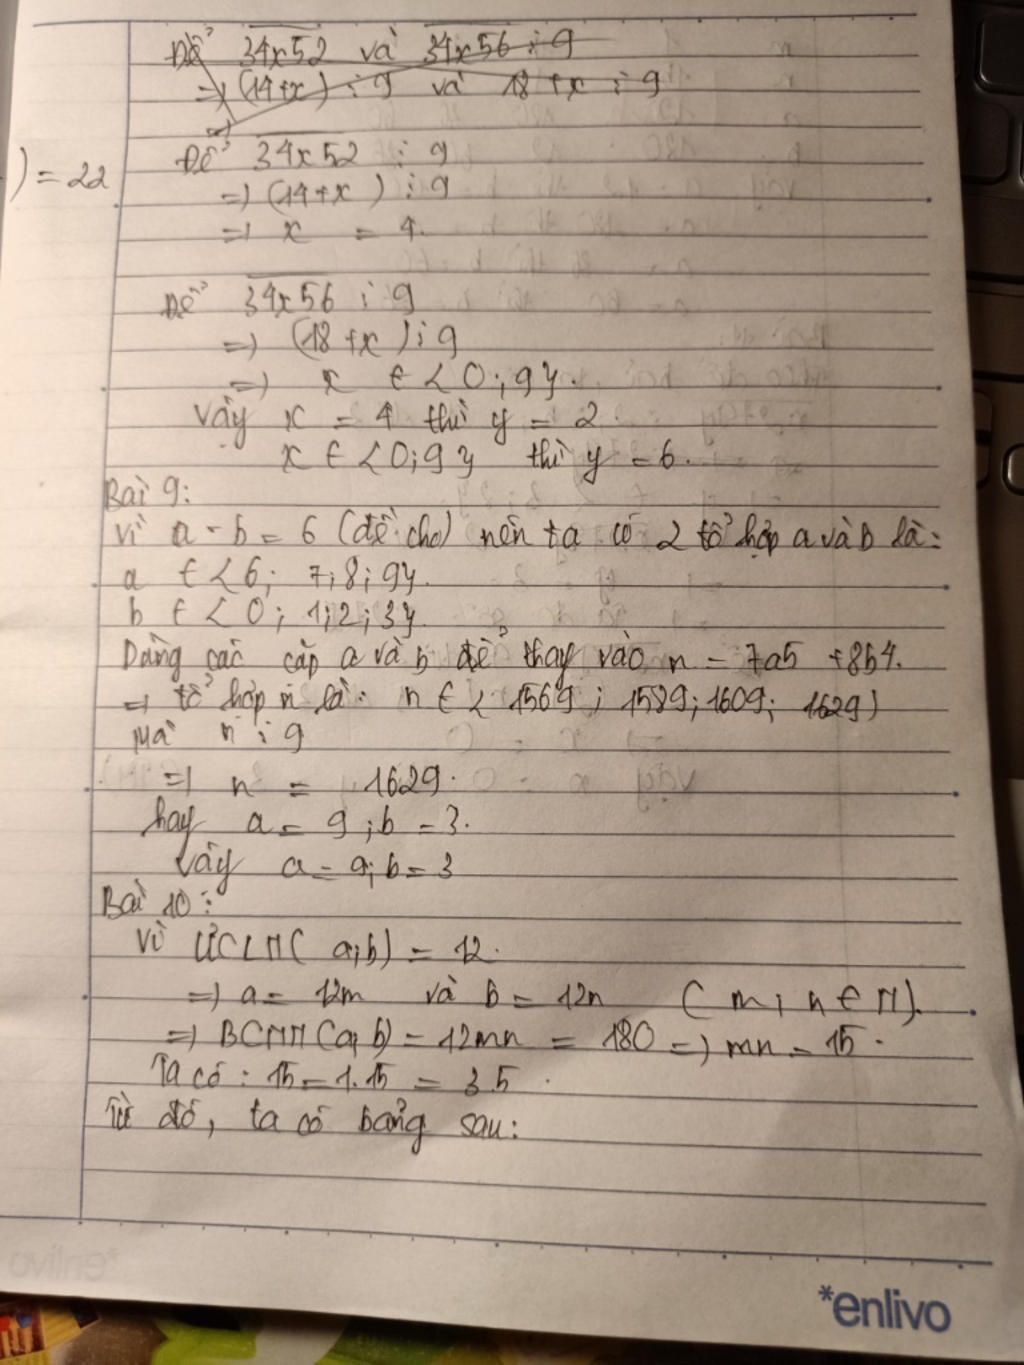 Để 34x52 và 34x56 ⋮ 9
=> (14+x) ⋮ 9 và 18 + x ⋮ 9
=>
Để 34x52 ⋮ 9
) = 22
=> (14+x) ⋮ 9
=> x = 4.
Để 34x56 ⋮ 9
=> (18+x) ⋮ 9
=> x ∈ {0;9}.
Vậy x = 4 thì y = 2
x ∈ {0;9} thì y = 6.
Bài 9:
Vì a - b = 6 (đề cho) nên ta có 2 tổ hợp a và b là:
a ∈ {6; 7; 8; 9}.
b ∈ {0; 1; 2; 3}.
Dùng các cặp a và b để thay vào n = 7a5 + 8b4.
=> tổ hợp n là: n ∈ {1569; 1589; 1609; 1629}
Mà n ⋮ 9
=> n = 1629.
hay a = 9; b = 3.
Vậy a = 9; b = 3
Bài 10:
Vì ƯCLN(a;b) = 12.
=> a = 12m và b = 12n (m, n ∈ N).
=> BCNN(a,b) = 12mn = 180 => mn = 15.
Ta có: 15 = 1.15 = 3.5.
Từ đó, ta có bảng sau:
*enlivo
*enlivo